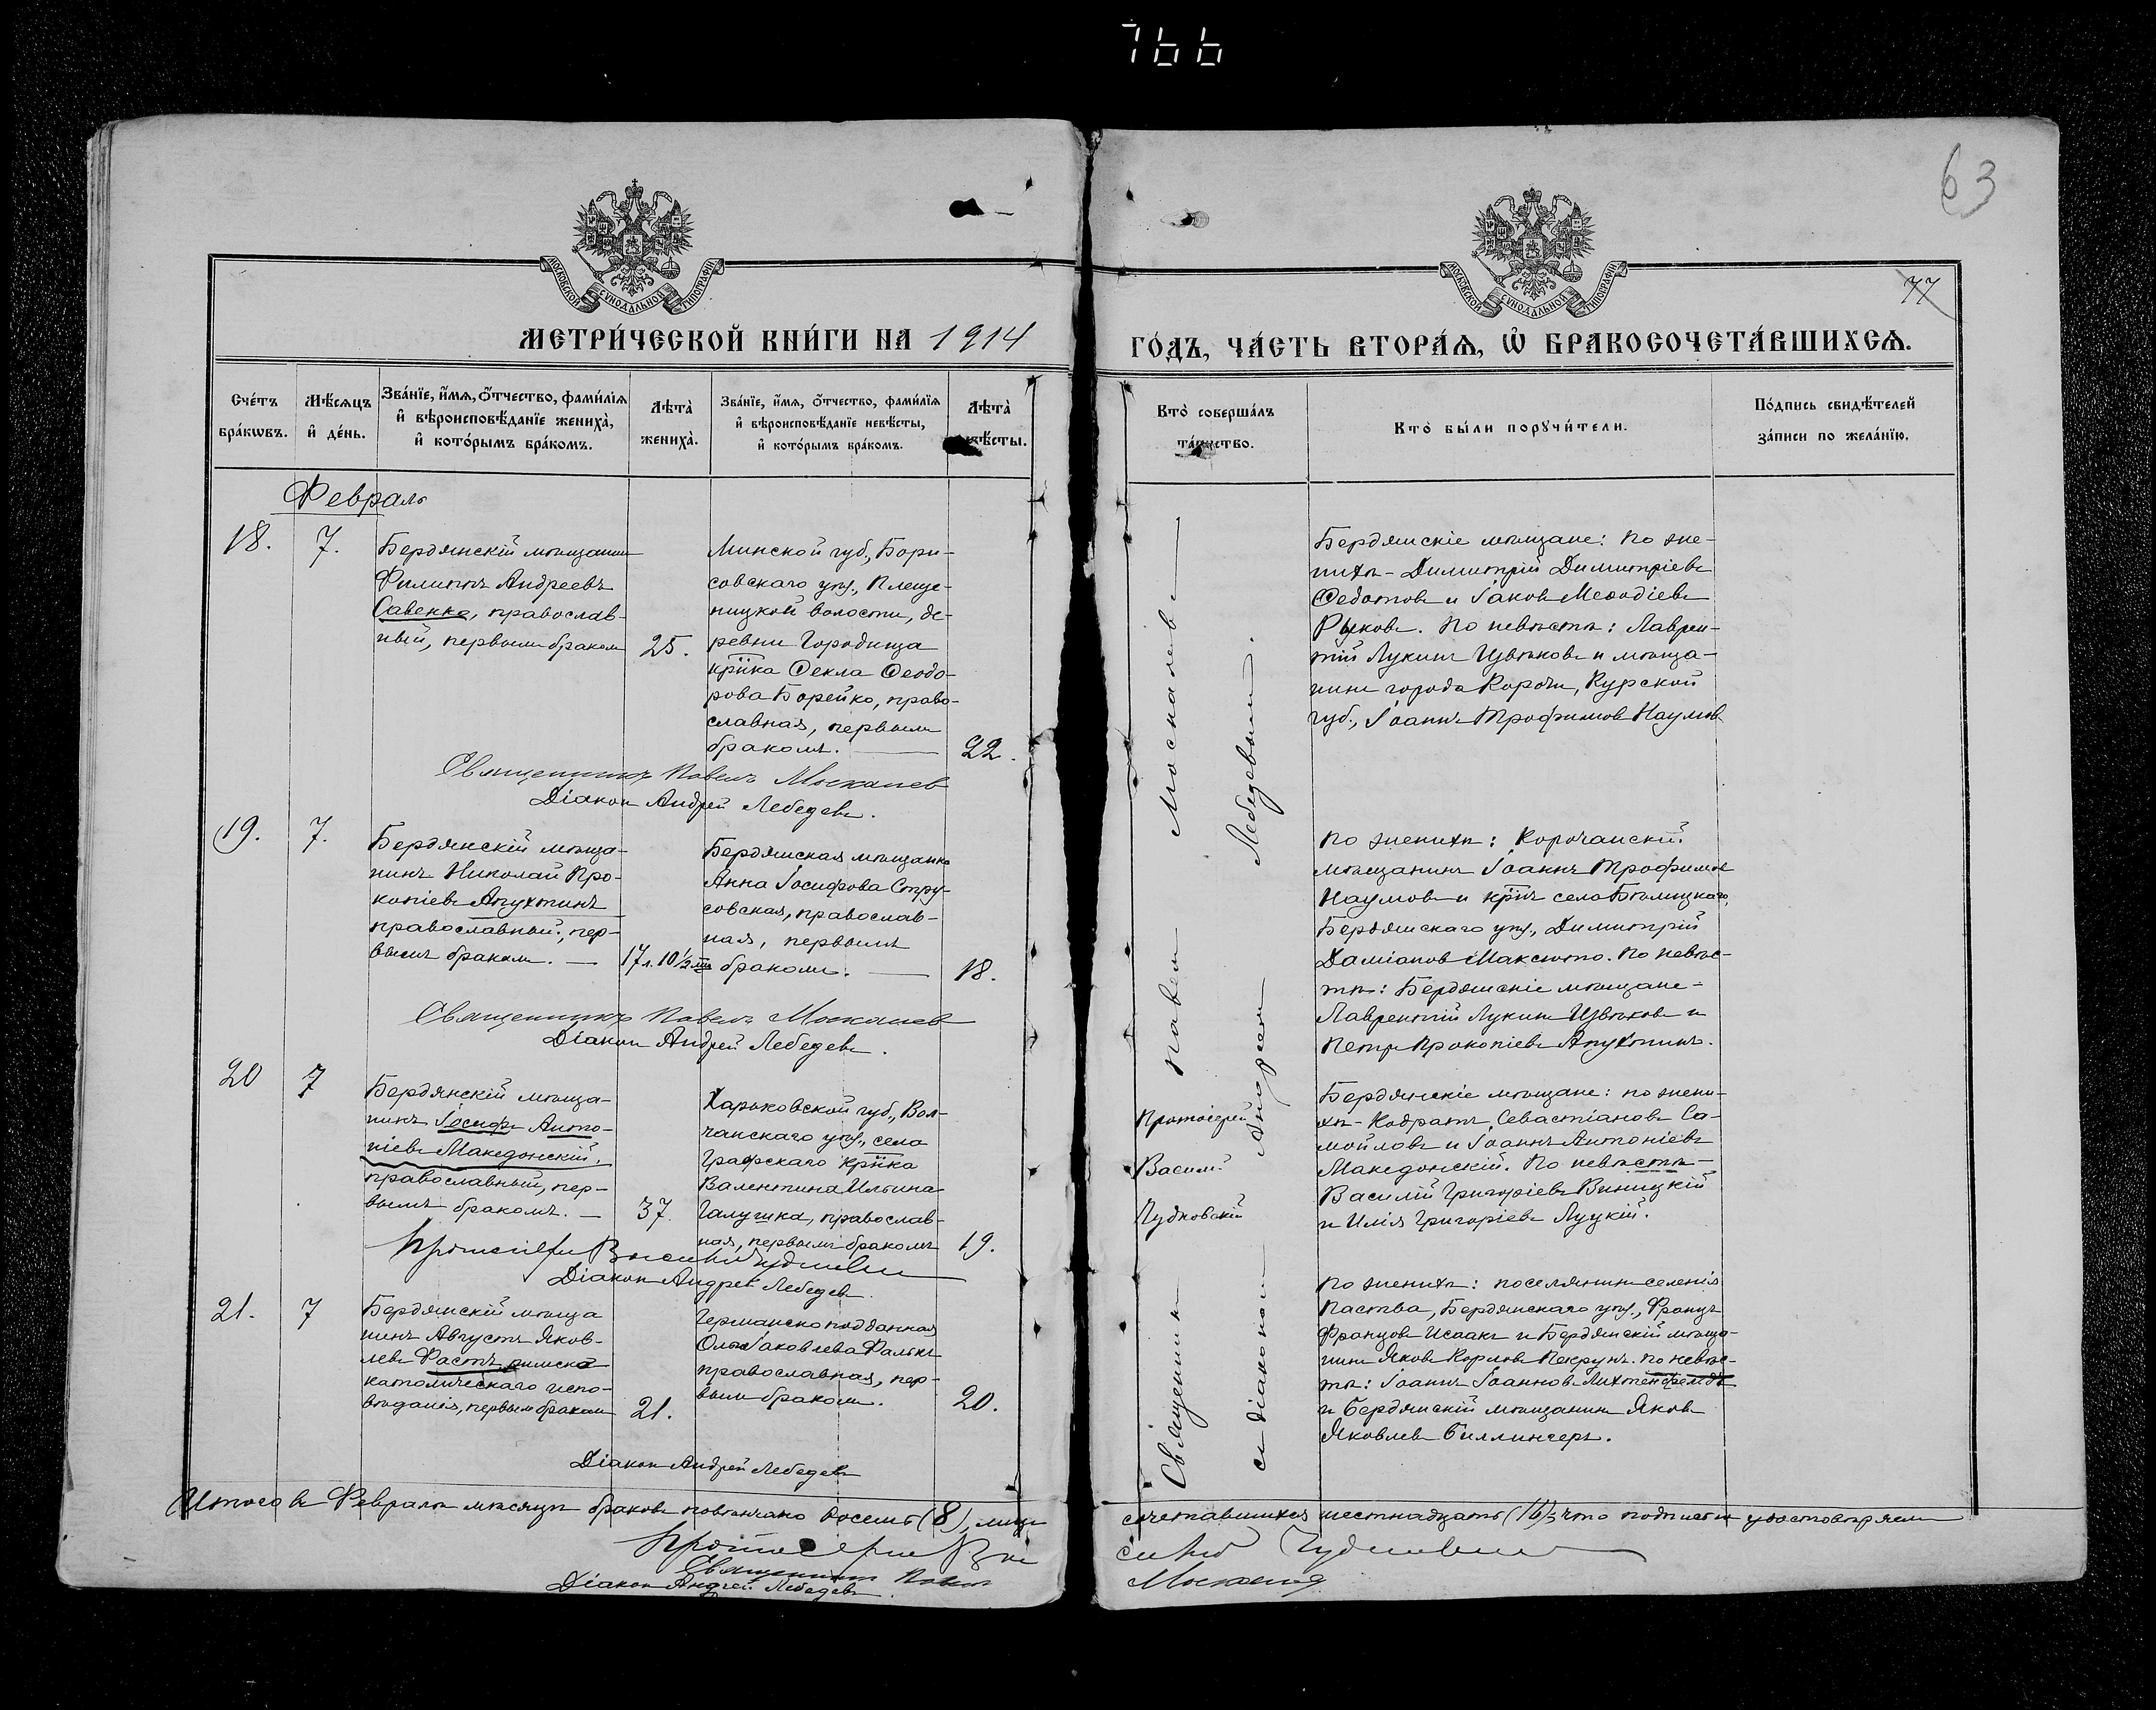 766
63
77
МОСКОВСКОЙ СУНОДАЛЬНОЙ ТИПОГРАФІИ
МОСКОВСКОЙ СУНОДАЛЬНОЙ ТИПОГРАФІИ
МЕТРИ́ЧЕСКОЙ КНИ́ГИ НА 1914
ГО́ДЪ, ЧА́СТЬ ВТОРА́Ѧ, Ѽ БРАКОСОЧЕТА́ВШИХСѦ.
Счéтъ бра́кѡвъ.
Мѣ́сяцъ и҆ де́нь.
Зва́нїе, и҆́мѧ, ѻ҆́тчество, фами́лїѧ
и҆ вѣроисповѣ́данїе жениха̀,
и҆ кото́рымъ бра́комъ.
Лѣ́та жениха̀.
Зва́нїе, и҆́мѧ, ѻ҆́тчество, фами́лїѧ
и҆ вѣроисповѣ́данїе невѣ́сты,
и҆ кото́рымъ бра́комъ.
Лѣ́та
Кто̀ соверша́лъ
Кто̀ бы́ли порꙋчи́тели.
По́дпись свидѣ́телей
за́писи по жела́нїю.
Февраль
18.
7.
Бердянскій мѣщанинъ
Филиппъ Андреевъ
Савенко, православ-
ный, первымъ бракомъ
25.
Минской губ., Бори-
совскаго уѣз., Плеще-
ницкой волости, де-
ревни Городища
крⷭ҇нка Ѳекла Ѳеодо-
рова Борейко, право-
славная, первымъ
бракомъ.
22.
Бердянскіе мѣщане: по же-
нихѣ - Димитрій Димитріевъ
Ѳедотовъ и Іаковъ Меѳодіевъ
Рыковъ. По невѣстѣ: Лаврен-
тій Лукинъ Цвѣтковъ и мѣща-
нинъ города Корочи, Курской
губ., Іоаннъ Трофимовъ Наумовъ
Священникъ Павелъ Москалевъ
Діаконъ Андрей Лебедевъ.
19.
7.
Бердянскій мѣща-
нинъ Николай Про-
копіевъ Апухтинъ
православный, пер-
вымъ бракомъ.
17 л. 10 1/2 м.
Бердянская мѣщанка
Анна Іосифова Стру-
совская, православ-
ная, первымъ
бракомъ.
18.
По женихѣ: Корочанскій
мѣщанинъ Іоаннъ Трофимовъ
Наумовъ и крⷭ҇нъ села
Бердянскаго уѣз., Димитрій
Даміановъ Максюто. По невѣс-
тѣ: Бердянскіе мѣщане -
Лаврентій Лукинъ Цвѣтковъ и
Петръ Прокопіевъ Апухтинъ.
Священникъ Павелъ Москалевъ
Діаконъ Андрей Лебедевъ.
20
7
Бердянскій мѣща-
нинъ Іосифъ Анто-
ніевъ Македонскій,
православный, пер-
вымъ бракомъ.
37.
Харьковской губ., Вол-
чанскаго уѣз., села
Графскаго крⷭ҇нка
Валентина Ильина
Галушка, православ-
ная, первымъ бракомъ
19.
Бердянскіе мѣщане: по жени-
хѣ - Кодратъ Севастіановъ Са-
мойловъ и Іоаннъ Антоніевъ
Македонскій. По невѣстѣ -
Василій Григоріевъ Виницкій
и Илія Григоріевъ Луцкій.
Протоіерей Василій Чудновскій
Діаконъ Андрей Лебедевъ.
21.
7
Бердянскій мѣща
нинъ Августъ Яков-
левъ Фастъ, римско
католическаго испо-
вѣданія, первымъ бракомъ
21.
Германско подданная
Ольга Іаковлева Фалькъ
православная, пер-
вымъ бракомъ.
20.
По женихѣ: поселянинъ селенія
Паства, Бердянскаго уѣз., Францъ
Францовъ Исаакъ и Бердянскій мѣща-
нинъ Яковъ Карловъ Пекрунъ. По невѣс-
тѣ: Іоаннъ Іоанновъ Лихтенфельдъ
и Бердянскій мѣщанинъ Яковъ
Яковлевъ Биллингеръ.
Діаконъ Андрей Лебедевъ
Священникъ Павелъ Москалевъ
съ діакономъ Андреемъ Лебедевымъ.
Протоіерей
Василій
Чудновскій
Итого въ Февралѣ мѣсяцѣ браковъ повѣнчано восемь (8), лицъ
сочетавшихся шестнадцать (16), что подписью удостовѣряемъ
Протоіерей Василій Чудновскій
Священникъ Павелъ Москалевъ
Діаконъ Андрей Лебедевъ.